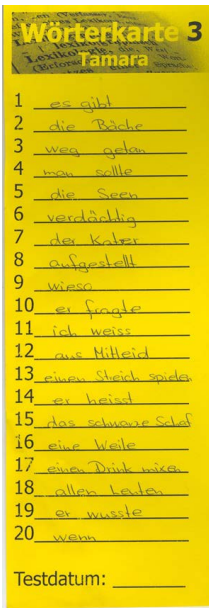 Wörterkarte 3
Tamara
1 es gibt
2 die Bäche
3 weg getan
4 man sollte
5 die Seen
6 verdächtig
7 der Kater
8 aufgestellt
9 wieso
10 er fragte
11 ich weiss
12 aus Mitleid
13 einen Streich spielen
14 er heisst
15 das schwarze Schaf
16 eine Weile
17 einen Drink mixen
18 allen Leuten
19 er wusste
20 wenn
Testdatum: